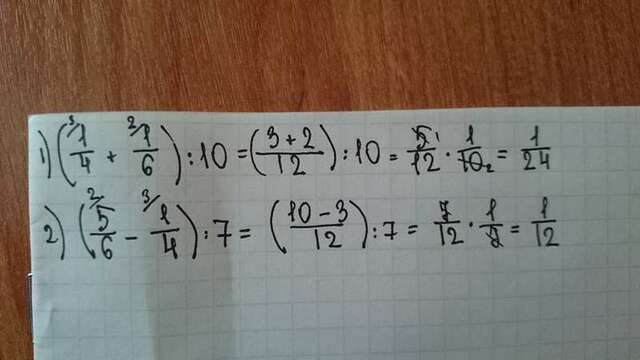 1) (³/1/4 + ²/1/6) : 10 = (3+2/12) : 10 = 5¹/12 · 1/10₂ = 1/24
2) (²/5/6 − ³/1/4) : 7 = (10−3/12) : 7 = 7/12 · 1/7 = 1/12